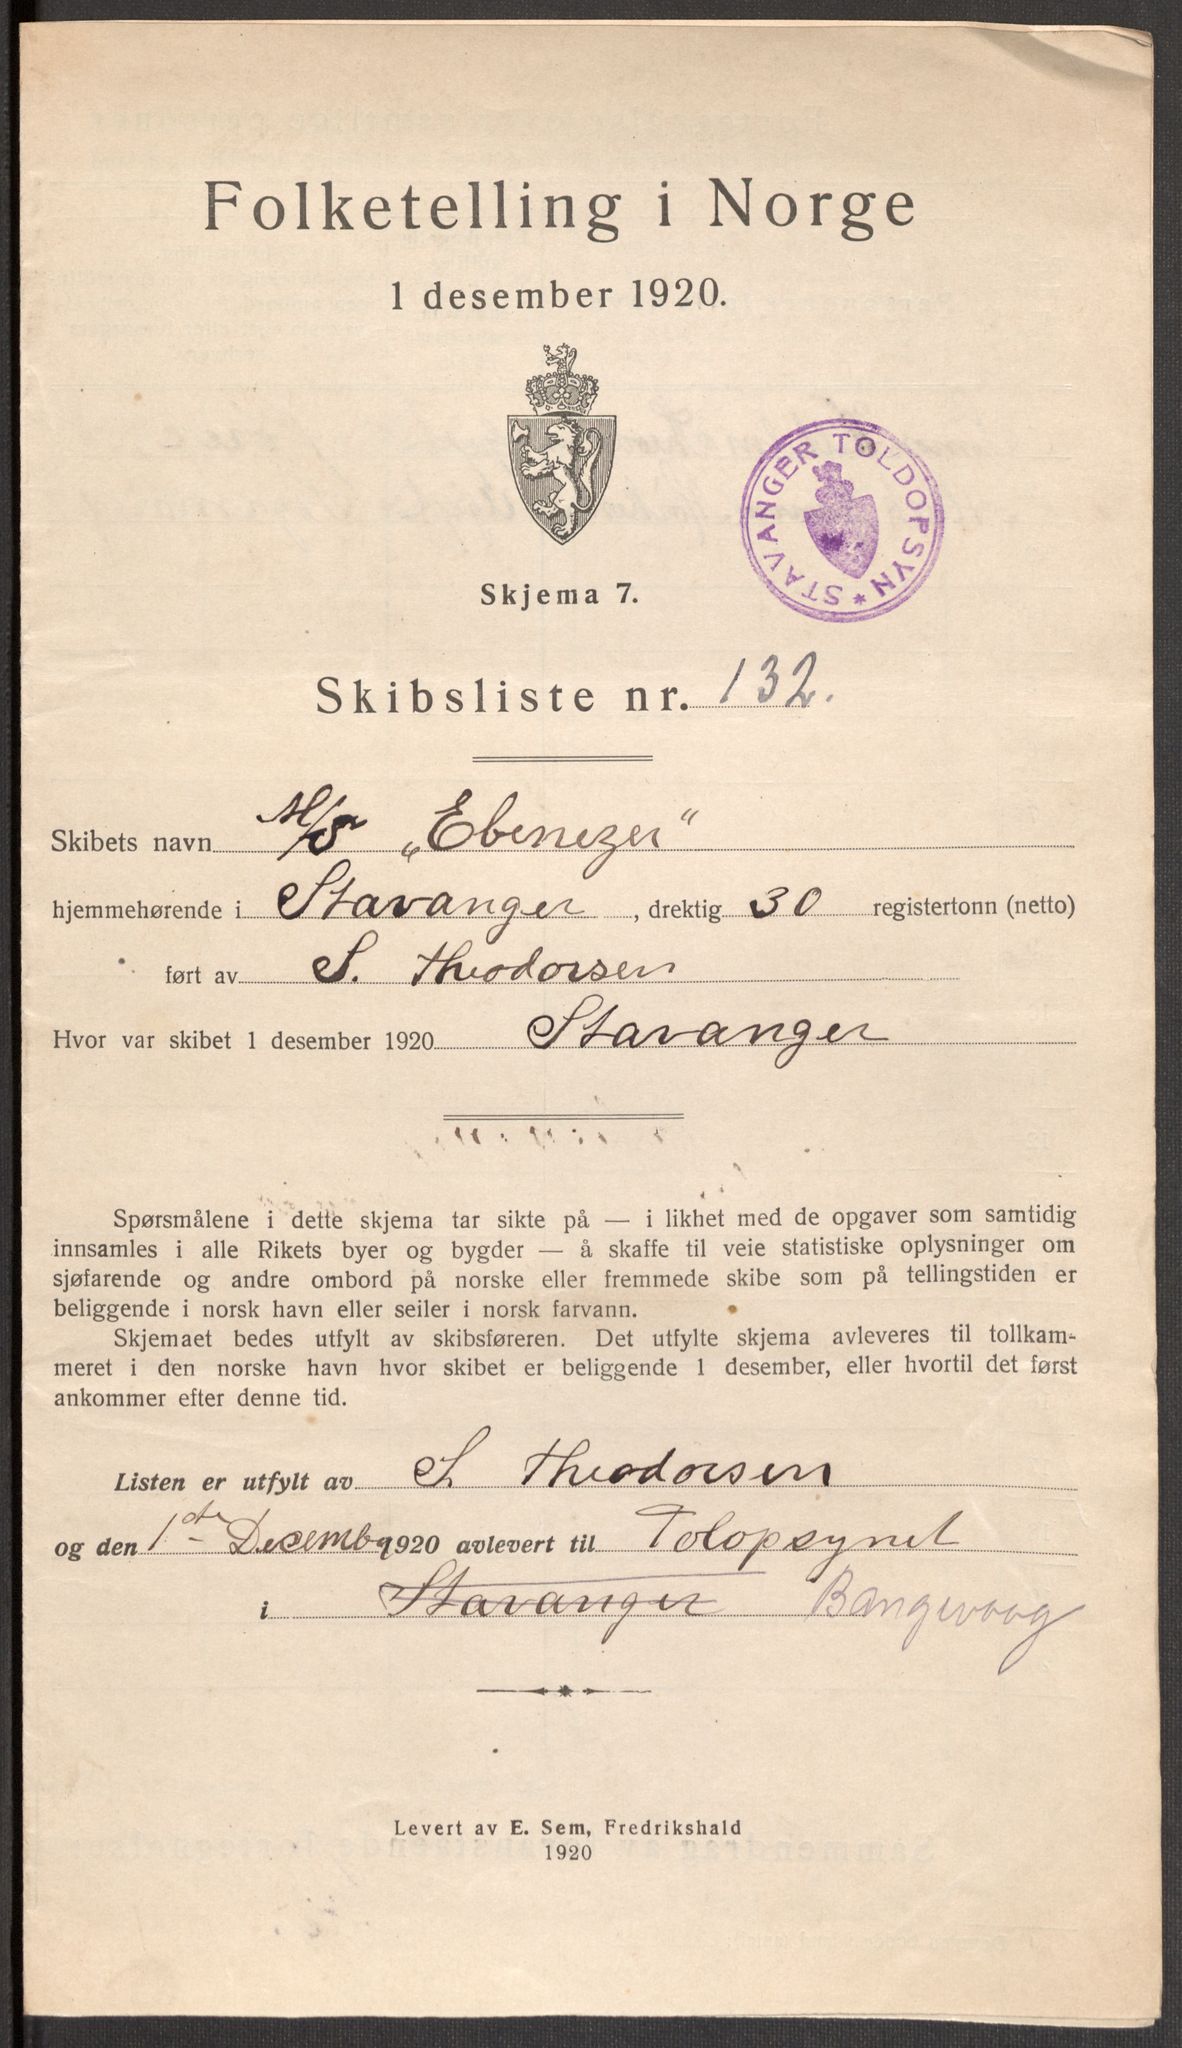 Folketelling i Norge
1 desember 1920.
STAVANGER TOLDOPSYN *
Skjema 7.
Skibsliste nr. 132.
Skibets navn M/S „Ebenezer“
hjemmehørende i Stavanger, drektig 30 registertonn (netto)
ført av S. Theodorsen
Hvor var skibet 1 desember 1920 Stavanger
Spørsmålene i dette skjema tar sikte på — i likhet med de opgaver som samtidig
innsamles i alle Rikets byer og bygder — å skaffe til veie statistiske oplysninger om
sjøfarende og andre ombord på norske eller fremmede skibe som på tellingstiden er
beliggende i norsk havn eller seiler i norsk farvann.
Skjemaet bedes utfylt av skibsføreren. Det utfylte skjema avleveres til tollkam-
meret i den norske havn hvor skibet er beliggende 1 desember, eller hvortil det først
ankommer efter denne tid.
Listen er utfylt av S. Theodorsen
og den 1ste Decembr 1920 avlevert til Tolopsynet
i Stavanger Bangevaag
Levert av E. Sem, Fredrikshald
1920